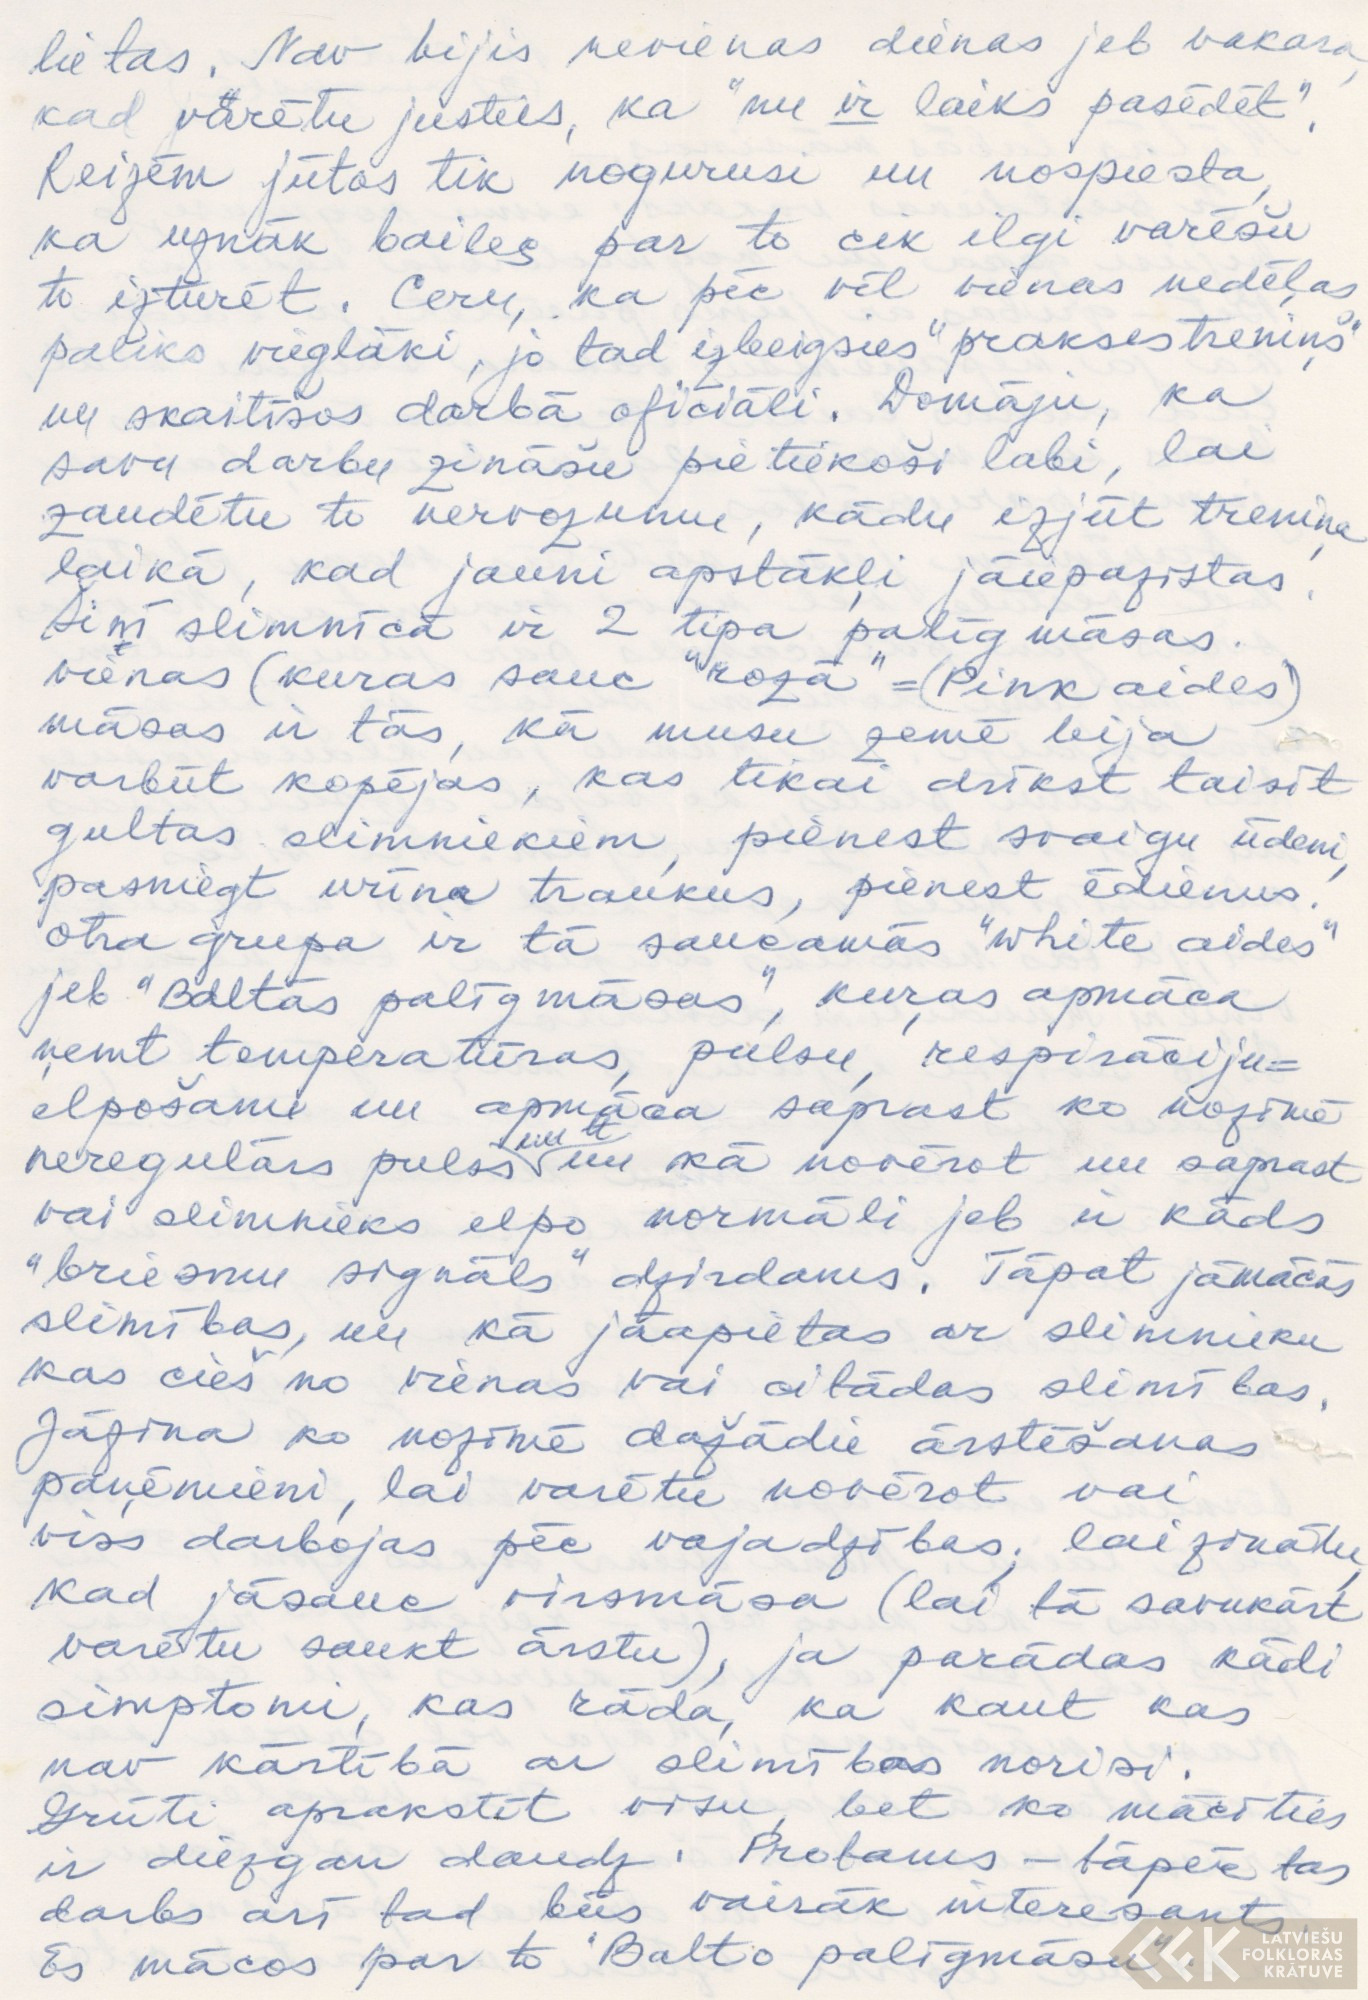 lietas. Nav bijis nevienas dienas jeb vakara,
kad varētu justies, ka "nu ir laiks pasēdēt".
Reizēm jūtos tik nogurusi un nospiesta,
ka uznāk bailes par to cik ilgi varēšu
to izturēt. Ceru, ka pēc vēl vienas nedēļas
paliks vieglāki, jo tad izbeigsies "praksestreniņš"
un skaitīšos darbā oficiāli. Domāju, ka
savu darbu zināšu pietiekoši labi, lai
zaudētu to nervozumu, kādu izjūt treniņa
laikā, kad jauni apstākļi jāiepazīstas.
Šinī slimnīcā ir 2 tipa palīgmāsas.
vienas (kuras sauc "rozā" = (Pink aides)
māsas ir tās, kā musu zemē bija
varbūt kopējas, kas tikai drīkst taisīt
gultas slimniekiem, pienest svaigu ūdeni,
pasniegt urīna traukus, pienest ēdienus.
otra grupa ir tā saucamās "white aides"
jeb "Baltās palīgmāsas", kuŗas apmāca
ņemt temperatūras, pulsu, respirāciju=
elpošanu un apmāca saprast ko nozīmē
neregulārs pulss un tt un kā novērot un saprast
vai slimnieks elpo normāli jeb ir kāds
"briesmu signāls" dzirdams. Tāpat jāmācās
slimības, un kā jāapietas ar slimnieku
kas cieš no vienas vai citādas slimības.
Jāzina ko nozīmē dažādie ārstēšanas
paņēmieni, lai varētu novērot vai
viss darbojas pēc vajadzības, lai zinātu,
kad jāsauc virsmāsa (lai tā savukārt
varētu saukt ārstu), ja parādas kādi
simptomi, kas rāda, ka kaut kas
nav kārtībā ar slimības norisi.
Grūti aprakstīt visu, bet ko mācīties
ir diezgan daudz. Protams – tāpēc tas
darbs arī tad būs vairāk interesants.
Es mācos par to "Balto palīgmāsu".
LATVIEŠU
FOLKLORAS
KRĀTUVE